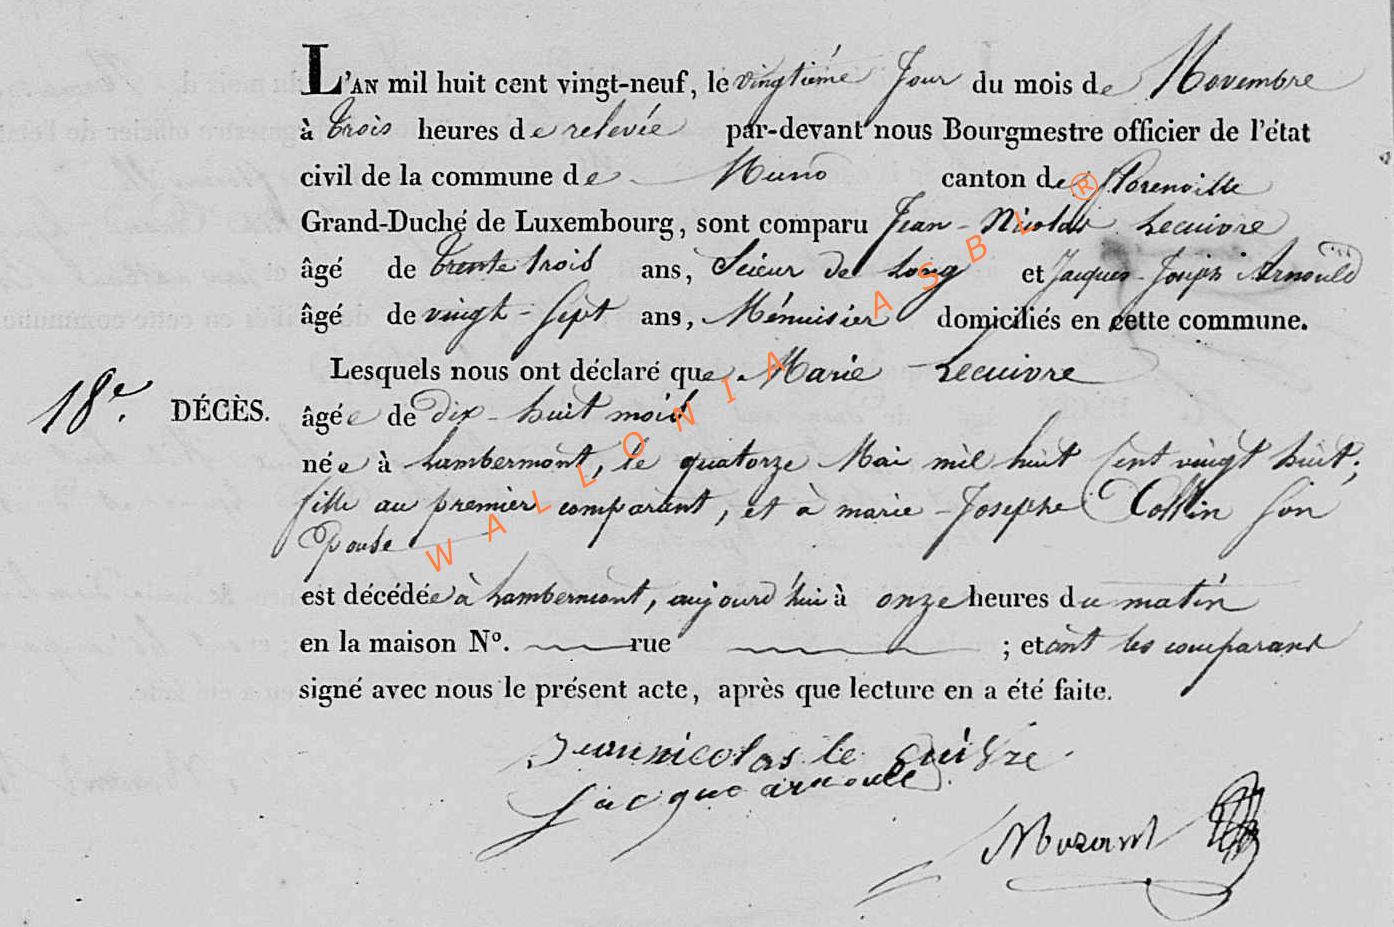 L'AN mil huit cent vingt-neuf, le vingtième Jour du mois de Novembre
à trois heures de relevée par-devant nous Bourgmestre officier de l'état
civil de la commune de Muno canton de Florenville
Grand-Duché de Luxembourg, sont comparu Jean-Nicolas Lecuivre
âgé de trente trois ans, Scieur de Long et Jacques-Joseph Arnould
âgé de vingt-Sept ans, Ménuisier domiciliés en cette commune.
Lesquels nous ont déclaré que Marie Lecuivre
18e. DÉCÈS. âgée de Dix-huit mois
née à Lambermont, le quatorze Mai mil huit Cent vingt huit;
fille au premier comparant, et à marie-Josephe Collin Son
Epouse
est décédée à Lambermont, aujourd'hui à onze heures du matin
en la maison No. rue ; etant les comparant
signé avec nous le présent acte, après que lecture en a été faite.
Jean nicolas le cuivre
Jacque arnould
WALLONIA ASBL ®